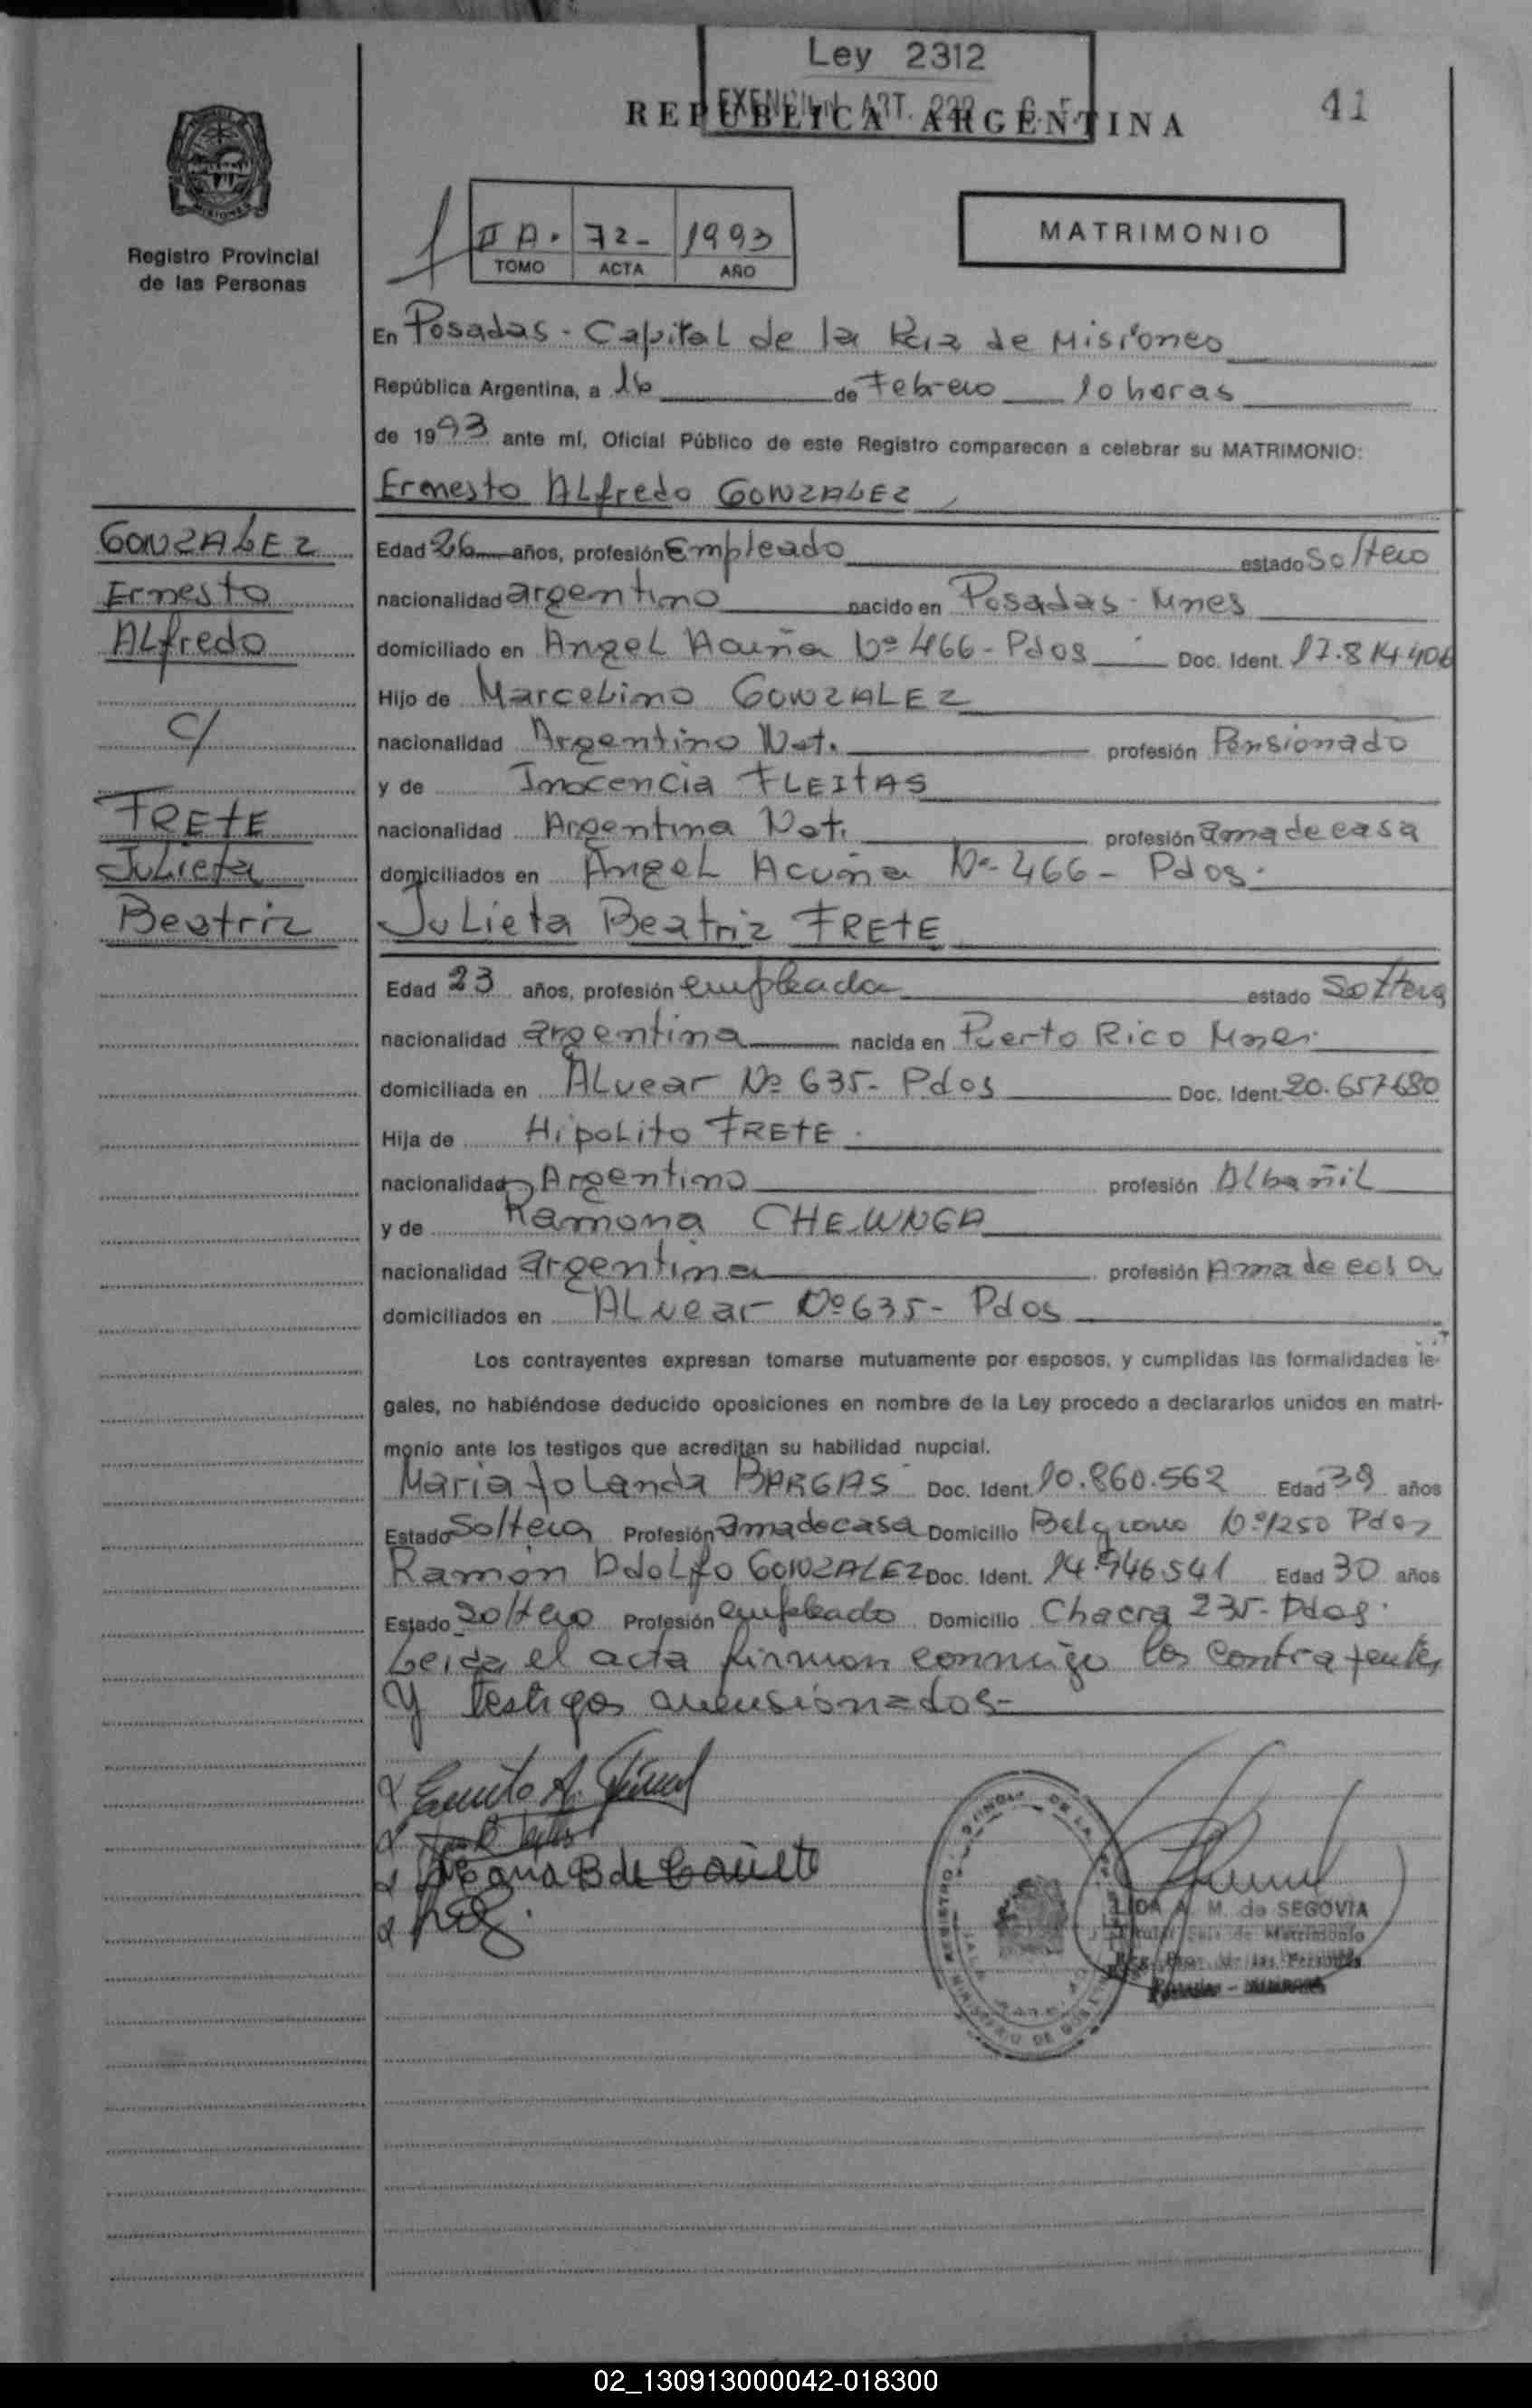 Ley 2312
EXENCION ART. 
REPUBLICA ARGENTINA
41
MISIONES
Registro Provincial
de las Personas
II A. 72- 1993
TOMO ACTA AÑO
MATRIMONIO
En Posadas - Capital de la Pcia de Misiones
República Argentina, a 16 de Febrero 10 horas
de 1993 ante mí, Oficial Público de este Registro comparecen a celebrar su MATRIMONIO:
Ernesto ALfredo GONZALEZ
GONZALEZ
Ernesto
ALfredo
c/
FRETE
Julieta
Beatriz
Edad 26 años, profesión Empleado estado Soltero
nacionalidad argentino nacido en Posadas - Mnes
domiciliado en Angel Acuña Nº 466 - Pdos Doc. Ident. 17.814.406
Hijo de Marcelino GONZALEZ
nacionalidad Argentino Nat. profesión Pensionado
y de Inocencia FLEITAS
nacionalidad Argentina Nat. profesión ama de casa
domiciliados en Angel Acuña Nº 466 - Pdos.
Julieta Beatriz FRETE
Edad 23 años, profesión empleada estado Soltera
nacionalidad argentina nacida en Puerto Rico Mnes.
domiciliada en ALvear Nº 635 - Pdos Doc. Ident. 20.657680
Hija de HipoLito FRETE.
nacionalidad Argentino profesión Albañil
y de Ramona
nacionalidad argentina profesión Ama de casa
domiciliados en ALvear Nº 635 - Pdos
Los contrayentes expresan tomarse mutuamente por esposos, y cumplidas las formalidades le-
gales, no habiéndose deducido oposiciones en nombre de la Ley procedo a declararlos unidos en matri-
monio ante los testigos que acreditan su habilidad nupcial.
Maria Yolanda BARGAS Doc. Ident. 10.860.562 Edad 39 años
Estado Soltera Profesión ama de casa Domicilio Belgrano Nº 1250 Pdos
Ramón Adolfo GONZALEZ Doc. Ident. 14.946.541 Edad 30 años
Estado Soltero Profesión empleado Domicilio Chacra 235 - Pdos.
Leida el acta firman conmigo los contrayentes
y testigos mensionados-
LIDA A. M. de SEGOVIA
Titular Sala de Matrimonio
Reg. Prov. de las Personas
Posadas - MISIONES
02_130913000042-018300